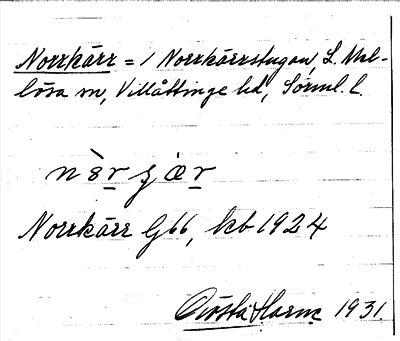 Norrkärr = 1 Norrkärrstugan, L. Mel-
lösa sn, Villåttinge hd, Sörml. l.
Norrkärr G66, kb 1924
Gösta Harme 1931.